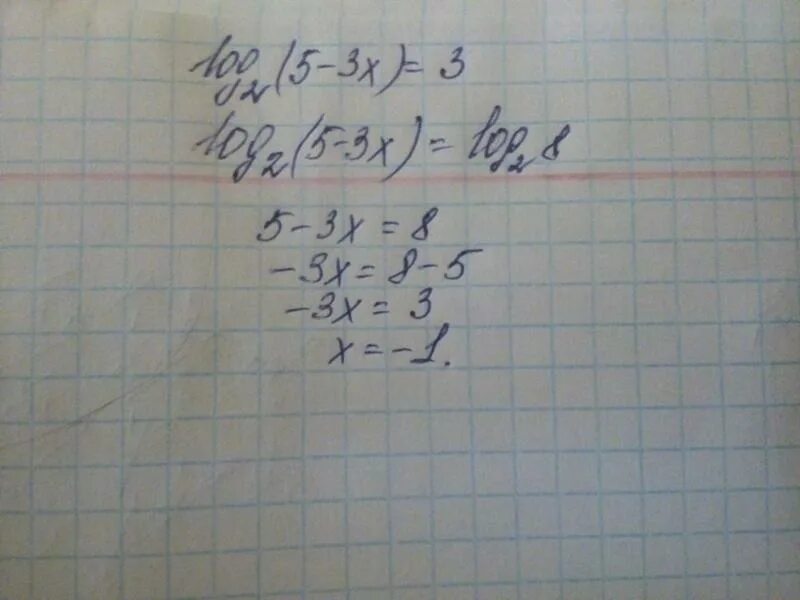 log₂(5-3x)=3
log₂(5-3x)=log₂8
5-3x=8
-3x=8-5
-3x=3
x=-1.